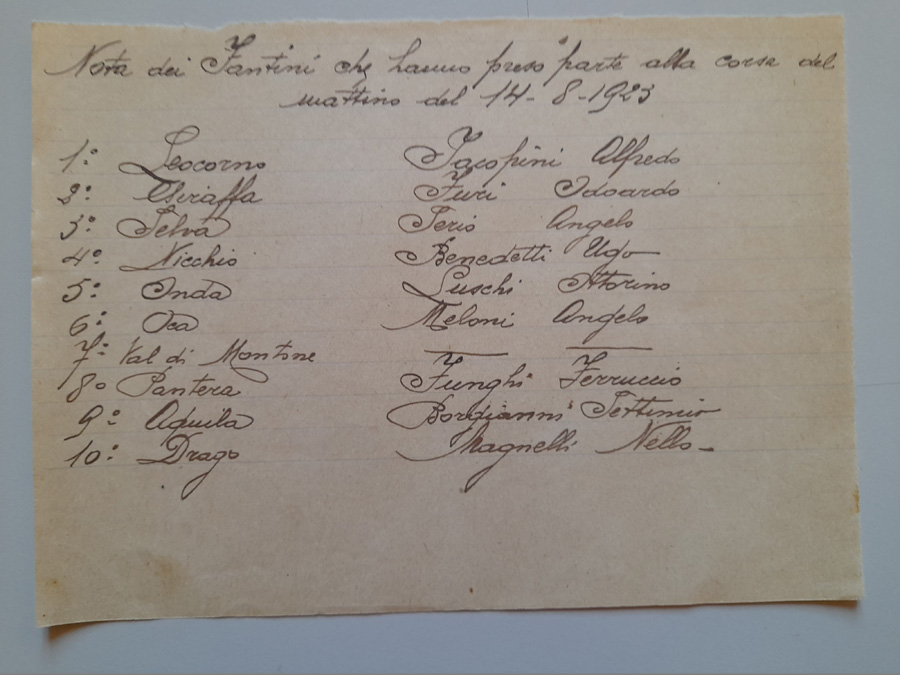 Nota dei Fantini che hanno preso parte alla corsa del
mattino del 14-8-1923
1º Leocorno Jacopini Alfredo
2º Giraffa Furi Odoardo
3º Selva Serio Angelo
4º Nicchio Benedetti Ugo
5º Onda Luschi Attorino
6º Oca Meloni Angelo
7º Val di Montone — —
8º Pantera Funghi Ferruccio
9º Aquila Settimio
10º Drago Magnelli Nello -